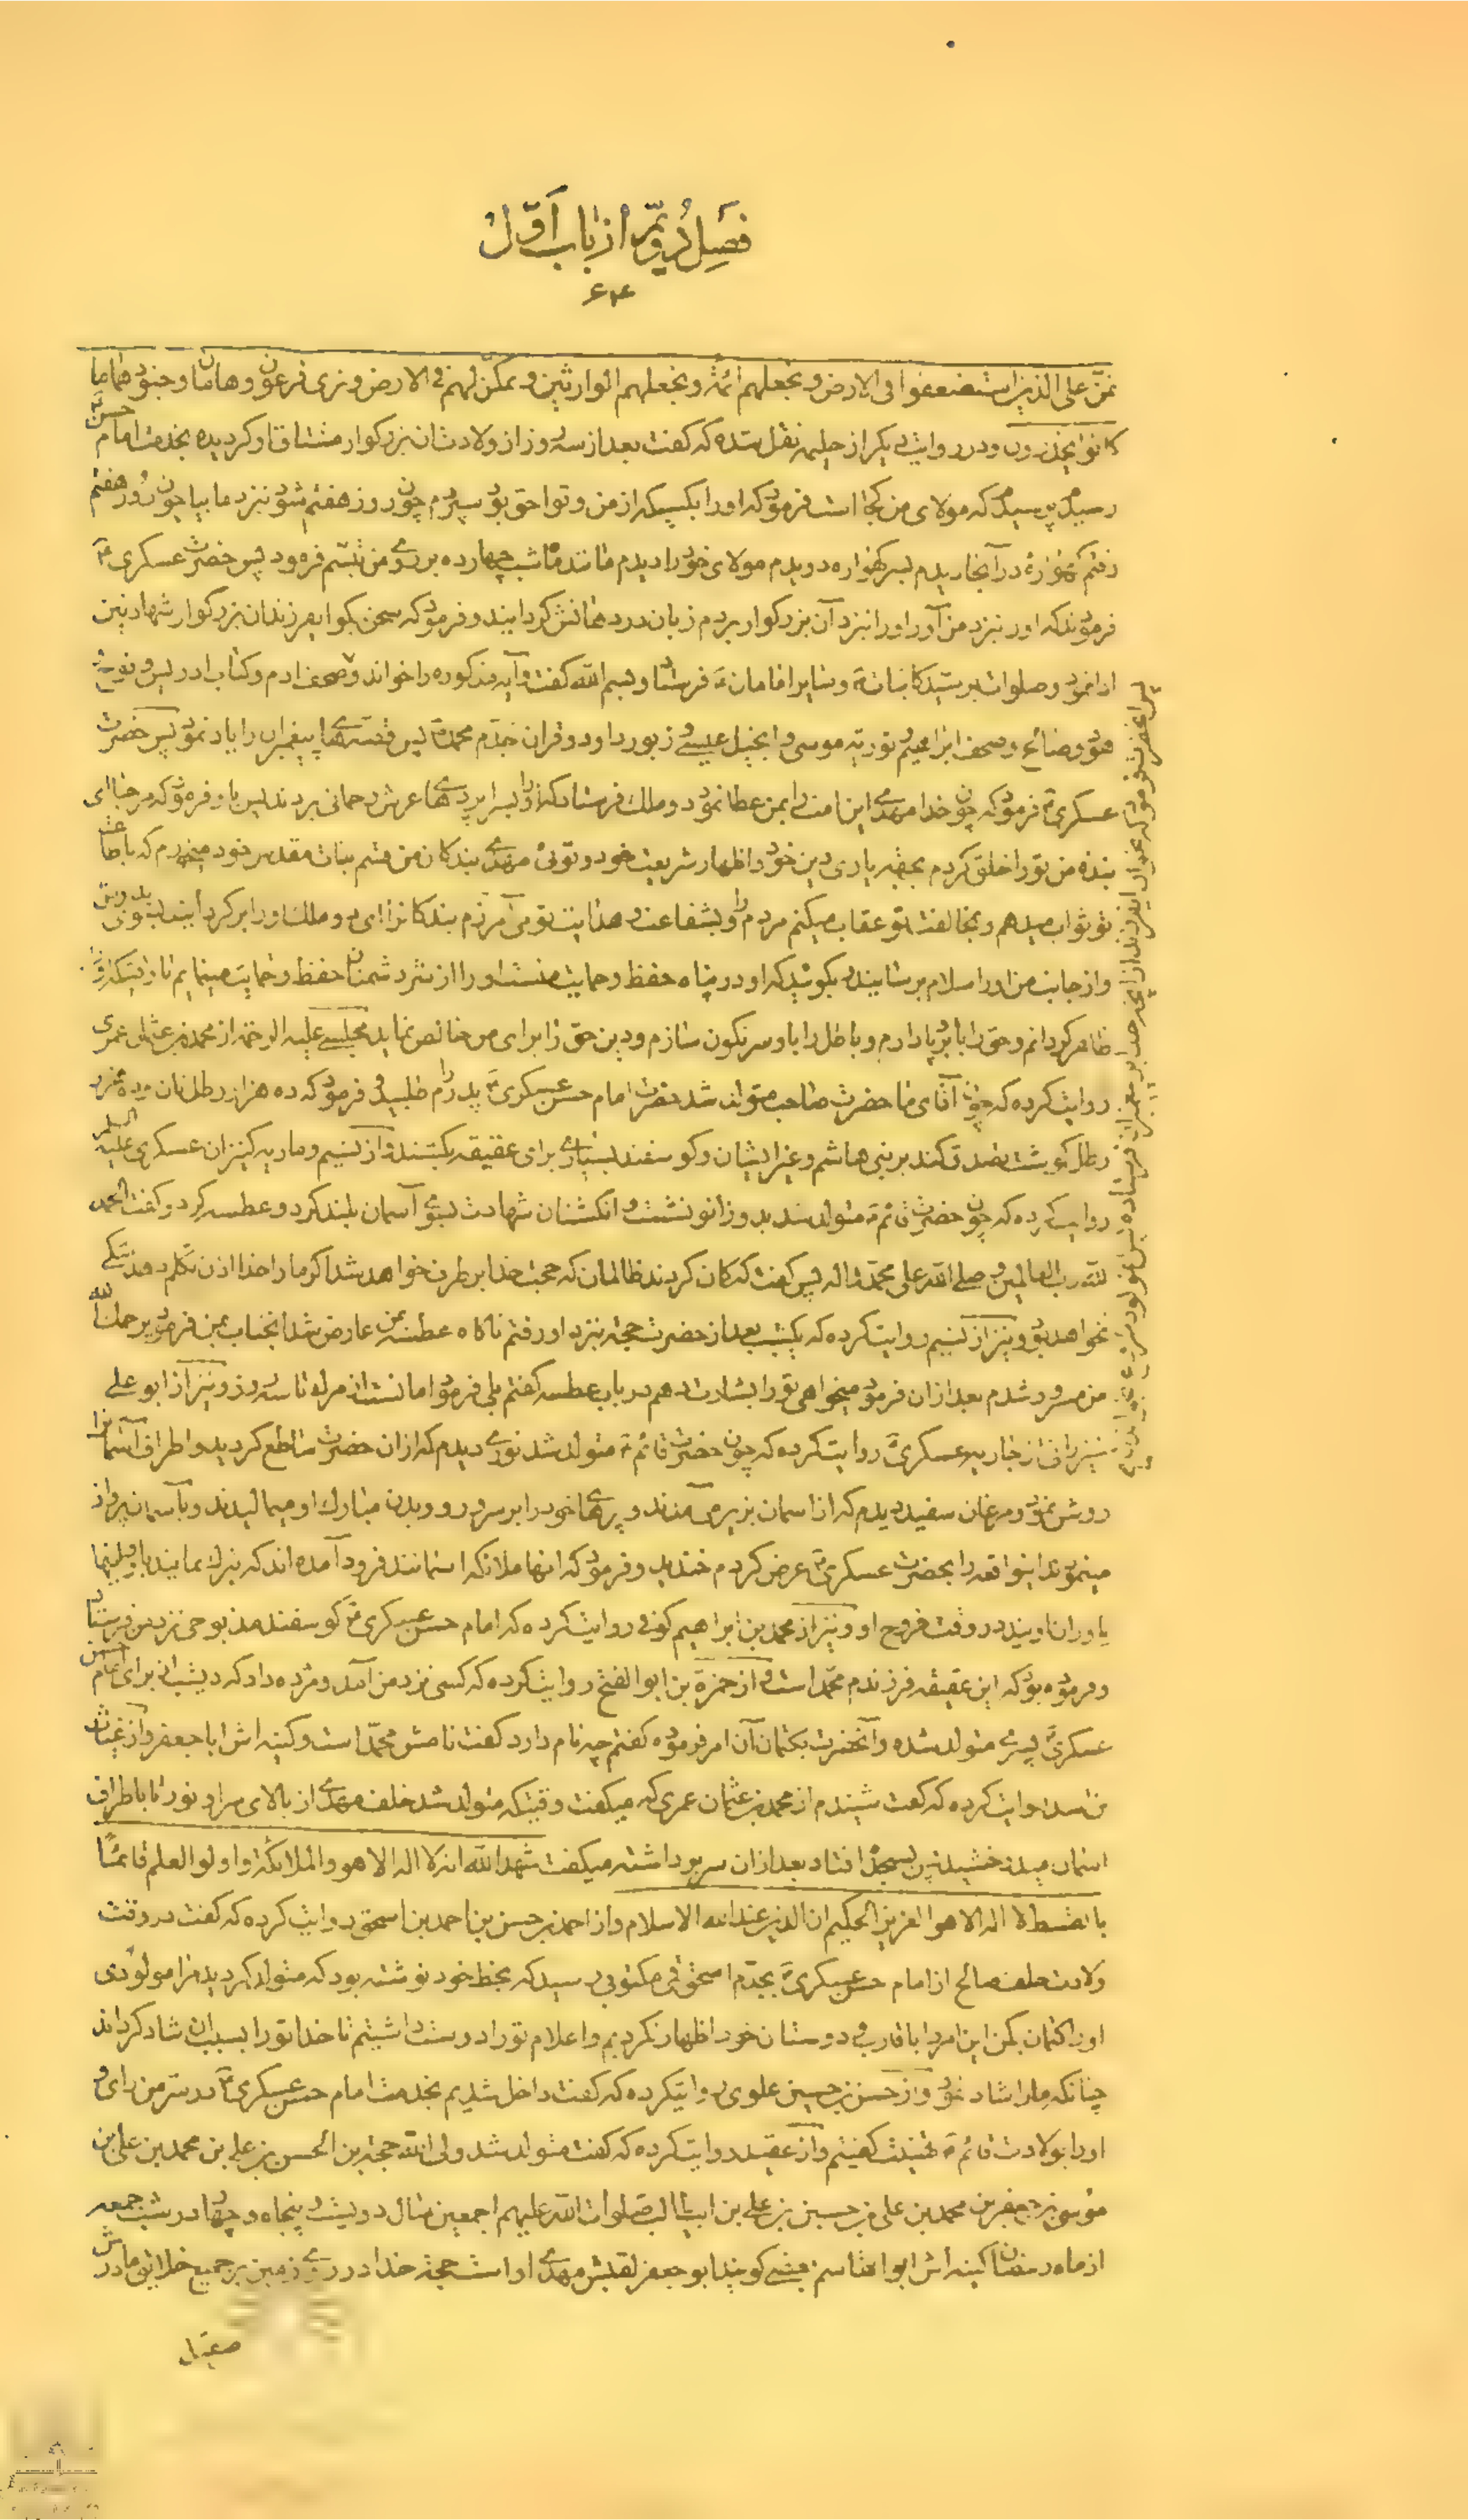 فصل دویم از باب اول
۶۴
نمن علی الذین استضعفوا فی الارض و نجعلهم ائمة و نجعلهم الوارثین و نمکن لهم فی الارض و نری فرعون و هامان و جنودهما ما
کانوا یحذرون و در روایت دیگر از حلیمه نقل شده که گفت بعد از سه روز از ولادت آن بزرگوار مشتاق او گردیده بخدمت امام حسن ع
رسیدم پرسیدم که مولای من کجا است فرمود که او را بکسیکه از من و تو احق بود سپردم چون روز هفتم شود نزد ما بیا چون روز هفتم
رفتم گهواره در آنجا دیدم بسر گهواره دویدم مولای خود را دیدم مانند ماه شب چهارده بر روی من تبسم فرمود پس حضرت عسکری ع
فرمودند که او را نزد من آور او را نزد آن بزرگوار بردم زبان در دهانش گردانید و فرمود که سخن بگو ای فرزند آن بزرگوار شهادتین
ادا نمود و صلوات بر سید کاینات و سایر امامان ع فرستاد و بسم الله گفت و آیه مذکوره را خواند و صحف ادم و کتاب ادریس و نوح
هود و صالح و صحف ابراهیم و توریة موسی و انجیل عیسی و زبور داود و قران جدم محمد ص پس قصه‌های پیغمبران را یاد نمود پس حضرت
عسکری ع فرمود که چون خدا مهدی این امت را بمن عطا نمود دو ملک فرستاد که او را بسراپرده‌های عرش رحمانی بردند پس باو فرمود که مرحبا ای
بنده من تو را خلق کردم بجهة یاری دین خود و اظهار شریعت خود و توئی مهدی بندگان من قسم بذات مقدس خود میخورم که باطاعت
تو ثواب میدهم و بمخالفت تو عقاب میکنم مردم را و بشفاعت و هدایت تو می آمرزم بندگانرا ای دو ملک او را برگردانید بسوی پدرش
و از جانب من او را سلام برسانید و بگوئید که او در پناه حفظ و حمایت منست او را از شر دشمنان حفظ و حمایت مینمایم تا وقتیکه او را
ظاهر گردانم و حق را باو برپا دارم و باطل را باو سرنگون سازم و دین حق را برای من خالص نماید مجلسی علیه الرحمه از محمد بن عثمان عمری
روایت کرده که چون آقای ما حضرت صاحب متولد شد حضرت امام حسن عسکری ع پدرم را طلبید و فرمود که ده هزار رطل نان و ده هزار
رطل گوشت تصدق کند بر بنی هاشم و غیر ایشان و گوسفند بسیاری برای عقیقه بکشند و از نسیم و ماریه کنیزان عسکری علیه السلم
روایت کرده که چون حضرت قائم ع متولد شد بدو زانو نشست و انگشتان شهادت بسوی آسمان بلند کرد و عطسه کرد و گفت الحمد
لله رب العالمین و صلی الله علی محمد و اله پس گفت که گمان کردند ظالمان که حجت خدا برطرف خواهد شد اگر ما را خدا اذن تکلم دهد شکی
نخواهد بود و نیز از نسیم روایت کرده که یکشب بعد از حضرت حجة نزد او رفتم ناگاه عطسه بمن عارض شد انجناب بمن فرمود یرحمک الله
من مسرور شدم بعد از ان فرمود میخواهی تو را بشارت دهم در باب عطسه گفتم بلی فرمود امانست از مرك تا سه روز و نیز از ابو علی
خیزرانی از جاریه عسکری ع روایت کرده که چون حضرت قائم ع متولد شد نوری دیدم که از ان حضرت ساطع گردید و اطراف آسمانرا
روشن نمود و مرغان سفید دیدم که از اسمان بزیر می‌آمدند و پرهای خود را بر سر و رو و بدن مبارك او میمالیدند و بآسمان پرواز
مینمودند اینواقعه را بحضرت عسکری ع عرض کردم خندید و فرمود که انها ملائکه اسمانند فرود آمده اند که تبرك نمایند باو و اینها
یاوران اویند در وقت خروج او و نیز از محمد بن ابراهیم کوفی روایت کرده که امام حسن عسکری ع گوسفند مذبوحی نزد من فرستاد
و فرموده بود که این عقیقه فرزندم محمد است و از حمزة بن ابو الفتح روایت کرده که کسی نزد من آمد و مژده داد که دیشب از برای امام حسن
عسکری ع پسری متولد شده و آنحضرت بکتمان آن امر فرموده گفتم چه نام دارد گفت نامش محمد است و کنیه اش ابا جعفر و از غیاث
بن اسد روایت کرده که گفت شنیدم از محمد بن عثمان عمری که میگفت وقتیکه متولد شد خلف مهدی از بالای سر او نور تا باطراف
اسمان میدرخشید پس بسجده افتاد بعد از ان سر برداشته میگفت شهد الله انه لا اله الا هو و الملائکة و اولو العلم قائما
بالقسط لا اله الا هو العزیز الحکیم ان الدین عند الله الاسلام و از احمد بن حسن بن احمد بن اسحق روایت کرده که گفت در وقت
ولادت خلف صالح از امام حسن عسکری ع بجدم اسحق قمی مکتوبی رسید که بخط خود نوشته بود که متولد گردید مرا مولودی
او را کتمان بکن این امر را باقارب و دوستان خود اظهار نکردیم و اعلام تو را دوست داشتیم تا خدا تو را بسبب ان شاد گرداند
چنانکه ما را شاد نمود و از حسن بن حسین علوی روایتکرده که گفت داخل شدیم بخدمت امام حسن عسکری ع در سر من رای و
او را بولادت قائم ع تهنیت گفتیم و از عقید روایت کرده که گفت متولد شد ولی الله حجة بن الحسن بن علی بن محمد بن علی بن
موسی بن جعفر بن محمد بن علی بن حسین بن علی بن ابیطالب صلوات الله علیهم اجمعین سال دویست و پنجاه و چهار در شب جمعه
از ماه رمضان کنیه اش ابو القاسم بعضی گویند ابو جعفر لقبش مهدی او است حجة خدا در روی زمین بر جمیع خلایق مادرش
صیقل